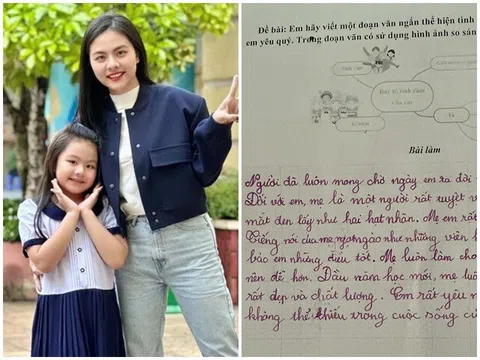 Đề bài: Em hãy viết một đoạn văn ngắn thể hiện tình
em yêu quý. Trong đoạn văn có sử dụng hình ảnh so sán
Bài làm
Người đã luôn mong chờ ngày em ra đời
Đối với em, mẹ là một người rất tuyệt v
mắt đen láy như hai hạt nhãn. Mẹ em rấ
Tiếng nói của mẹ ngọt ngào như những viên k
bảo em những điều tốt. Mẹ luôn làm cho
nên dễ hơn. Đầu năm học mới, mẹ luô
rất đẹp và chất lượng. Em rất yêu m
không thể thiếu trong cuộc sống củ